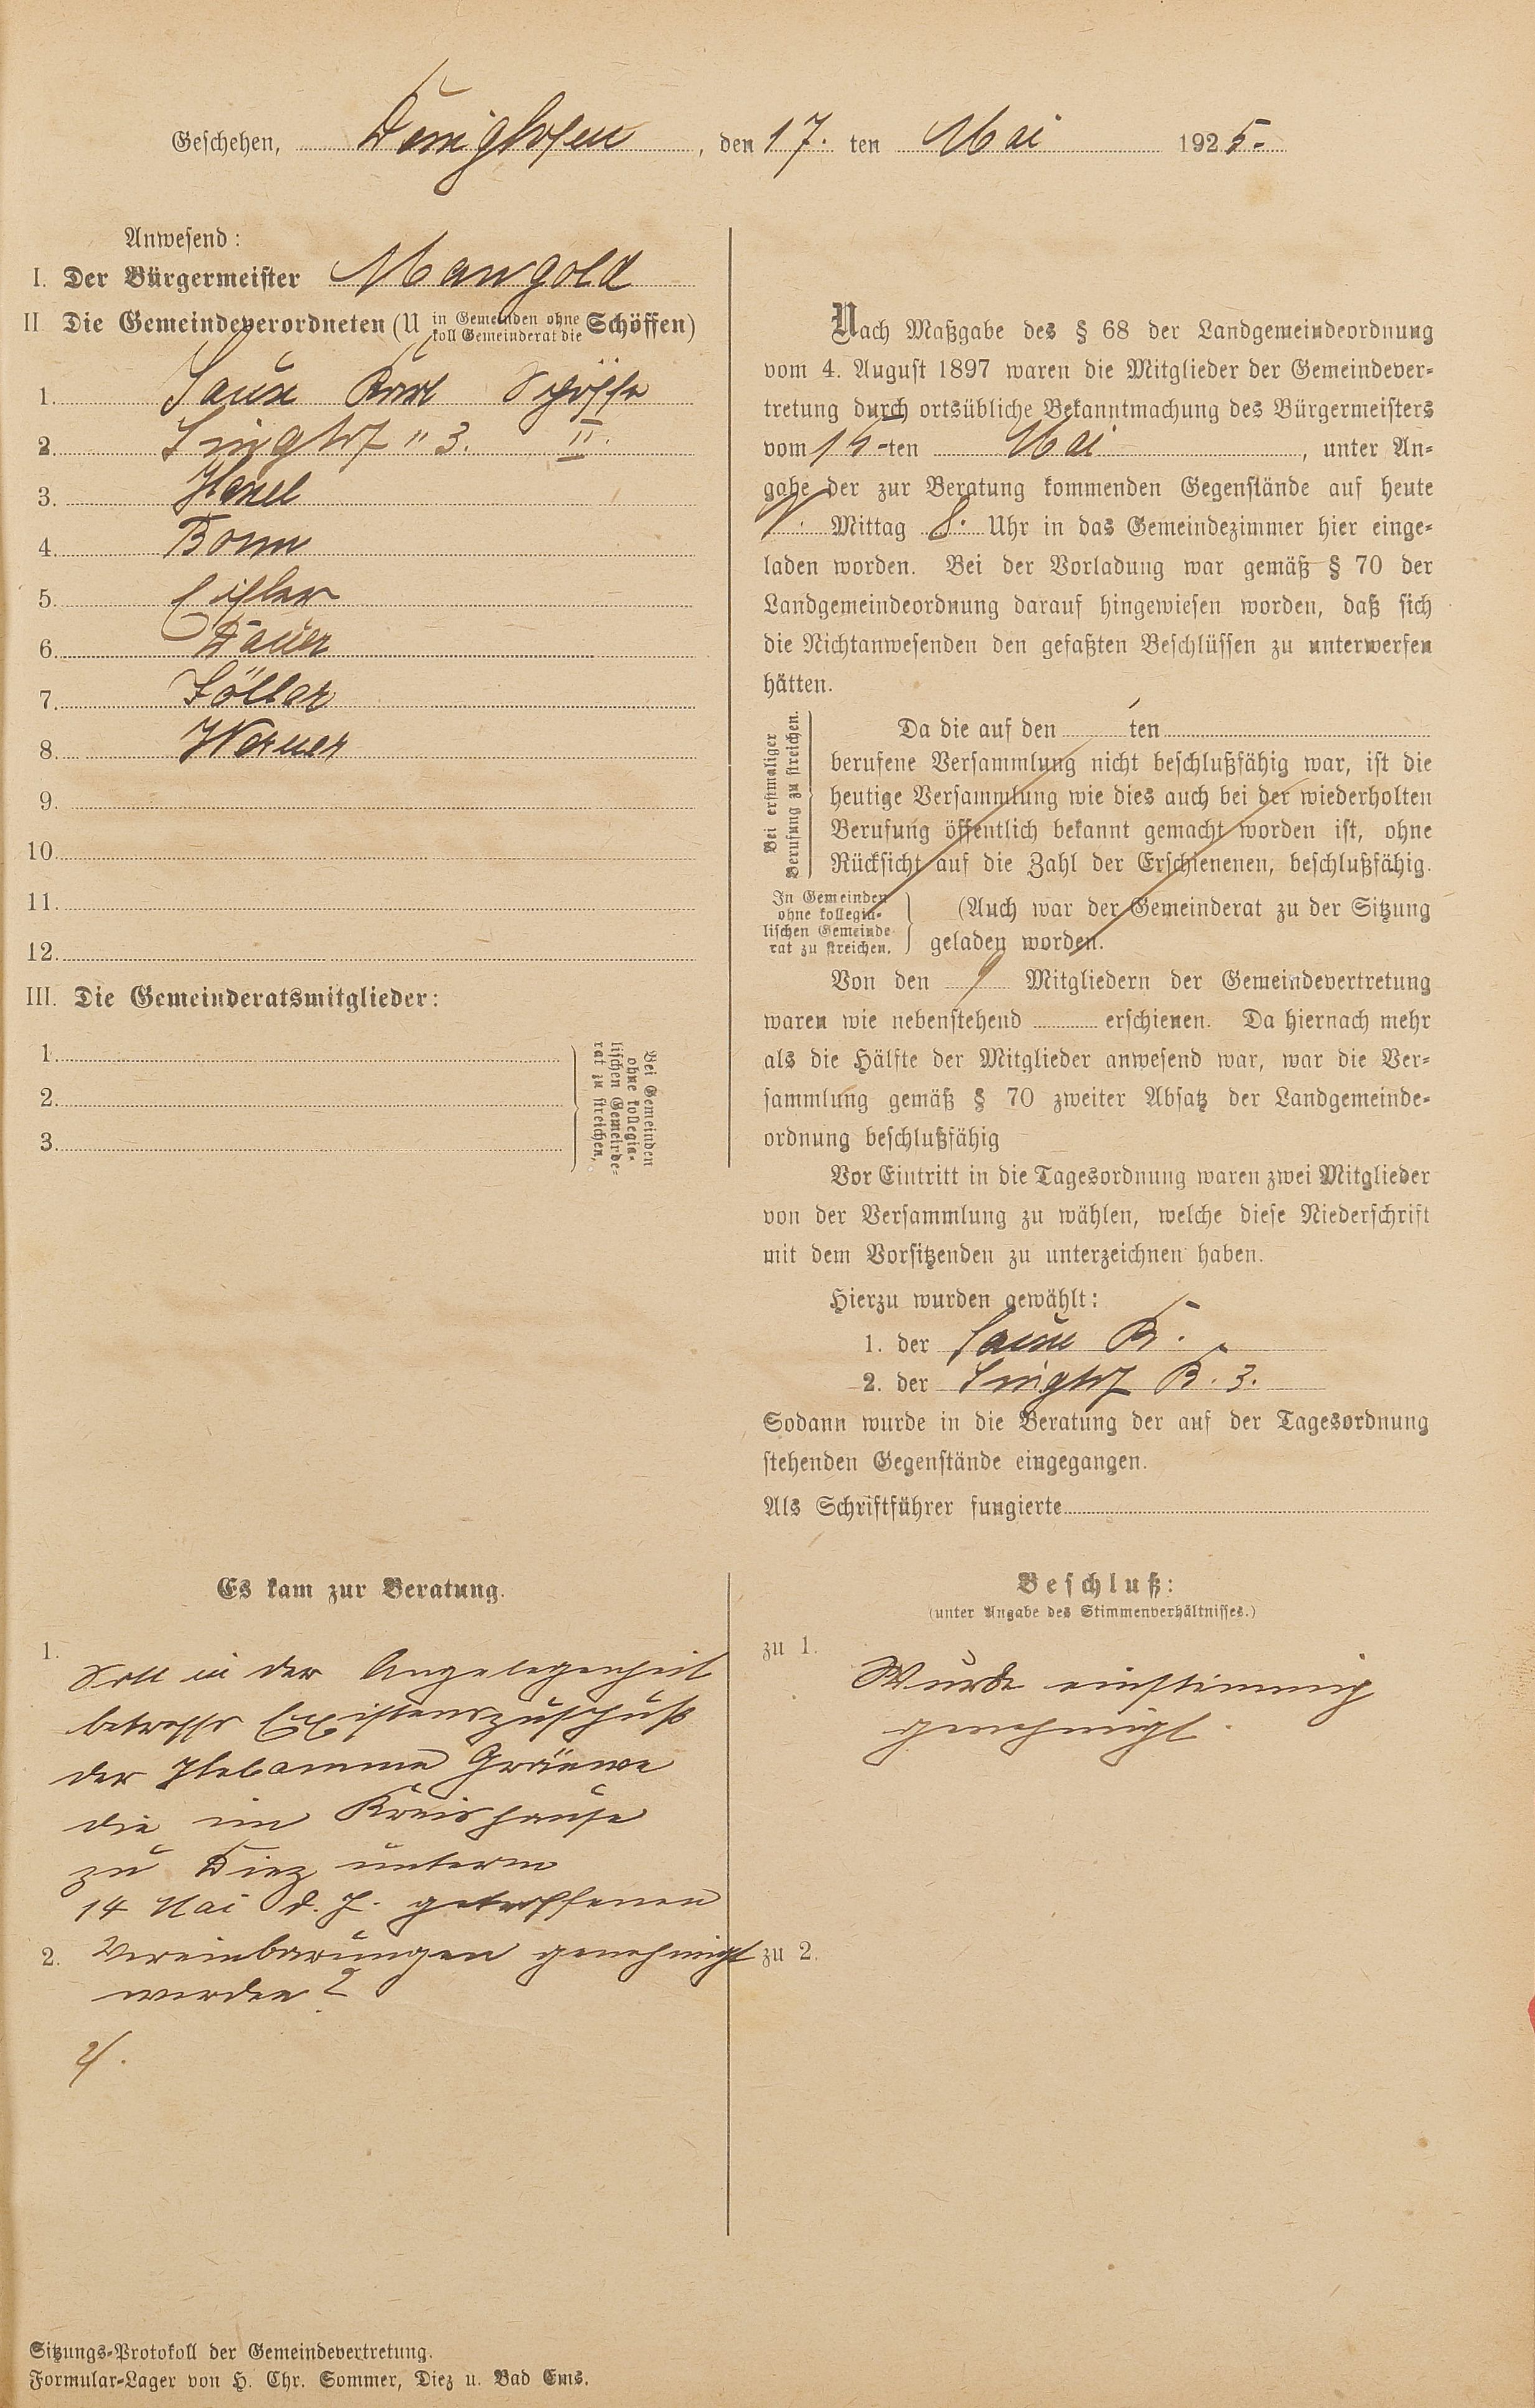 Geschehen, Dornigheim, den 17. ten Mai 1925.
Anwesend:
I. Der Bürgermeister Mangold
II Die Gemeindeverordneten (U in Gemeinden ohne koll Gemeinderat die Schöffen)
1. Karl Schöffe
2. " 3. II.
3.
4. Bonn
5.
6. Dauer
7. Söller
8. Werner
9.
10.
11.
12.
III. Die Gemeinderatsmitglieder:
1.
2.
3.
Bei Gemeinden
ohne kollegia-
lischen Gemeinde-
rat zu streichen.
Nach Maßgabe des § 68 der Landgemeindeordnung
vom 4. August 1897 waren die Mitglieder der Gemeindever-
tretung durch ortsübliche Bekanntmachung des Bürgermeisters
vom ten Mai, unter An-
gabe der zur Beratung kommenden Gegenstände auf heute
N. Mittag 8. Uhr in das Gemeindezimmer hier einge-
laden worden. Bei der Vorladung war gemäß § 70 der
Landgemeindeordnung darauf hingewiesen worden, daß sich
die Nichtanwesenden den gefaßten Beschlüssen zu unterwerfen
hätten.
Bei erstmaliger
Berufung zu streichen.
Da die auf den ten
berufene Versammlung nicht beschlußfähig war, ist die
heutige Versammlung wie dies auch bei der wiederholten
Berufung öffentlich bekannt gemacht worden ist, ohne
Rücksicht auf die Zahl der Erschienenen, beschlußfähig.
In Gemeinden
ohne kollegia-
lischen Gemeinde-
rat zu streichen.
(Auch war der Gemeinderat zu der Sitzung
geladen worden.
Von den 9 Mitgliedern der Gemeindevertretung
waren wie nebenstehend erschienen. Da hiernach mehr
als die Hälfte der Mitglieder anwesend war, war die Ver-
sammlung gemäß § 70 zweiter Absatz der Landgemeinde-
ordnung beschlußfähig
Vor Eintritt in die Tagesordnung waren zwei Mitglieder
von der Versammlung zu wählen, welche diese Niederschrift
mit dem Vorsitzenden zu unterzeichnen haben.
Hierzu wurden gewählt:
1. der K.
2. der K. 3.
Sodann wurde in die Beratung der auf der Tagesordnung
stehenden Gegenstände eingegangen.
Als Schriftführer fungierte
Es kam zur Beratung.
1.
Soll in der Angelegenheit
betreffs Existenszuschuß
der Hebamme Gräuwe
die im Kreishause
zu Diez unterm
14 Mai d. J. getroffenen
2. Vereinbarungen genehmigt
werden?
2/.
Beschluß:
(unter Angabe des Stimmenverhältnisses.)
zu 1.
Wurde einstimmig
genehmigt.
zu 2.
Sitzungs-Protokoll der Gemeindevertretung.
Formular-Lager von H. Chr. Sommer, Diez u. Bad Ems.